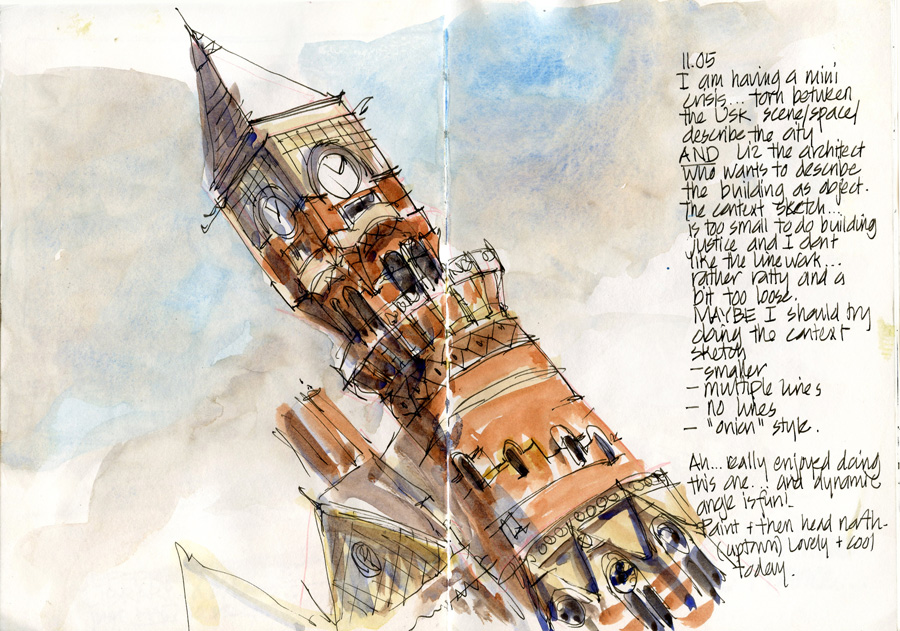 11.05
I am having a mini
crisis... torn between
the USK scene/space/
describe the city
AND Liz the architect
who wants to describe
the building as object.
The context sketch...
is too small to do building
justice and I dont
like the line work...
rather ratty and a
bit too loose.
MAYBE I should try
doing the context
sketch
- smaller
- multiple lines
- no lines
- "onion" style.
Ah... really enjoyed doing
this one... and dynamic
angle is fun!
Paint + then head north-
(uptown) Lovely + cool
today.